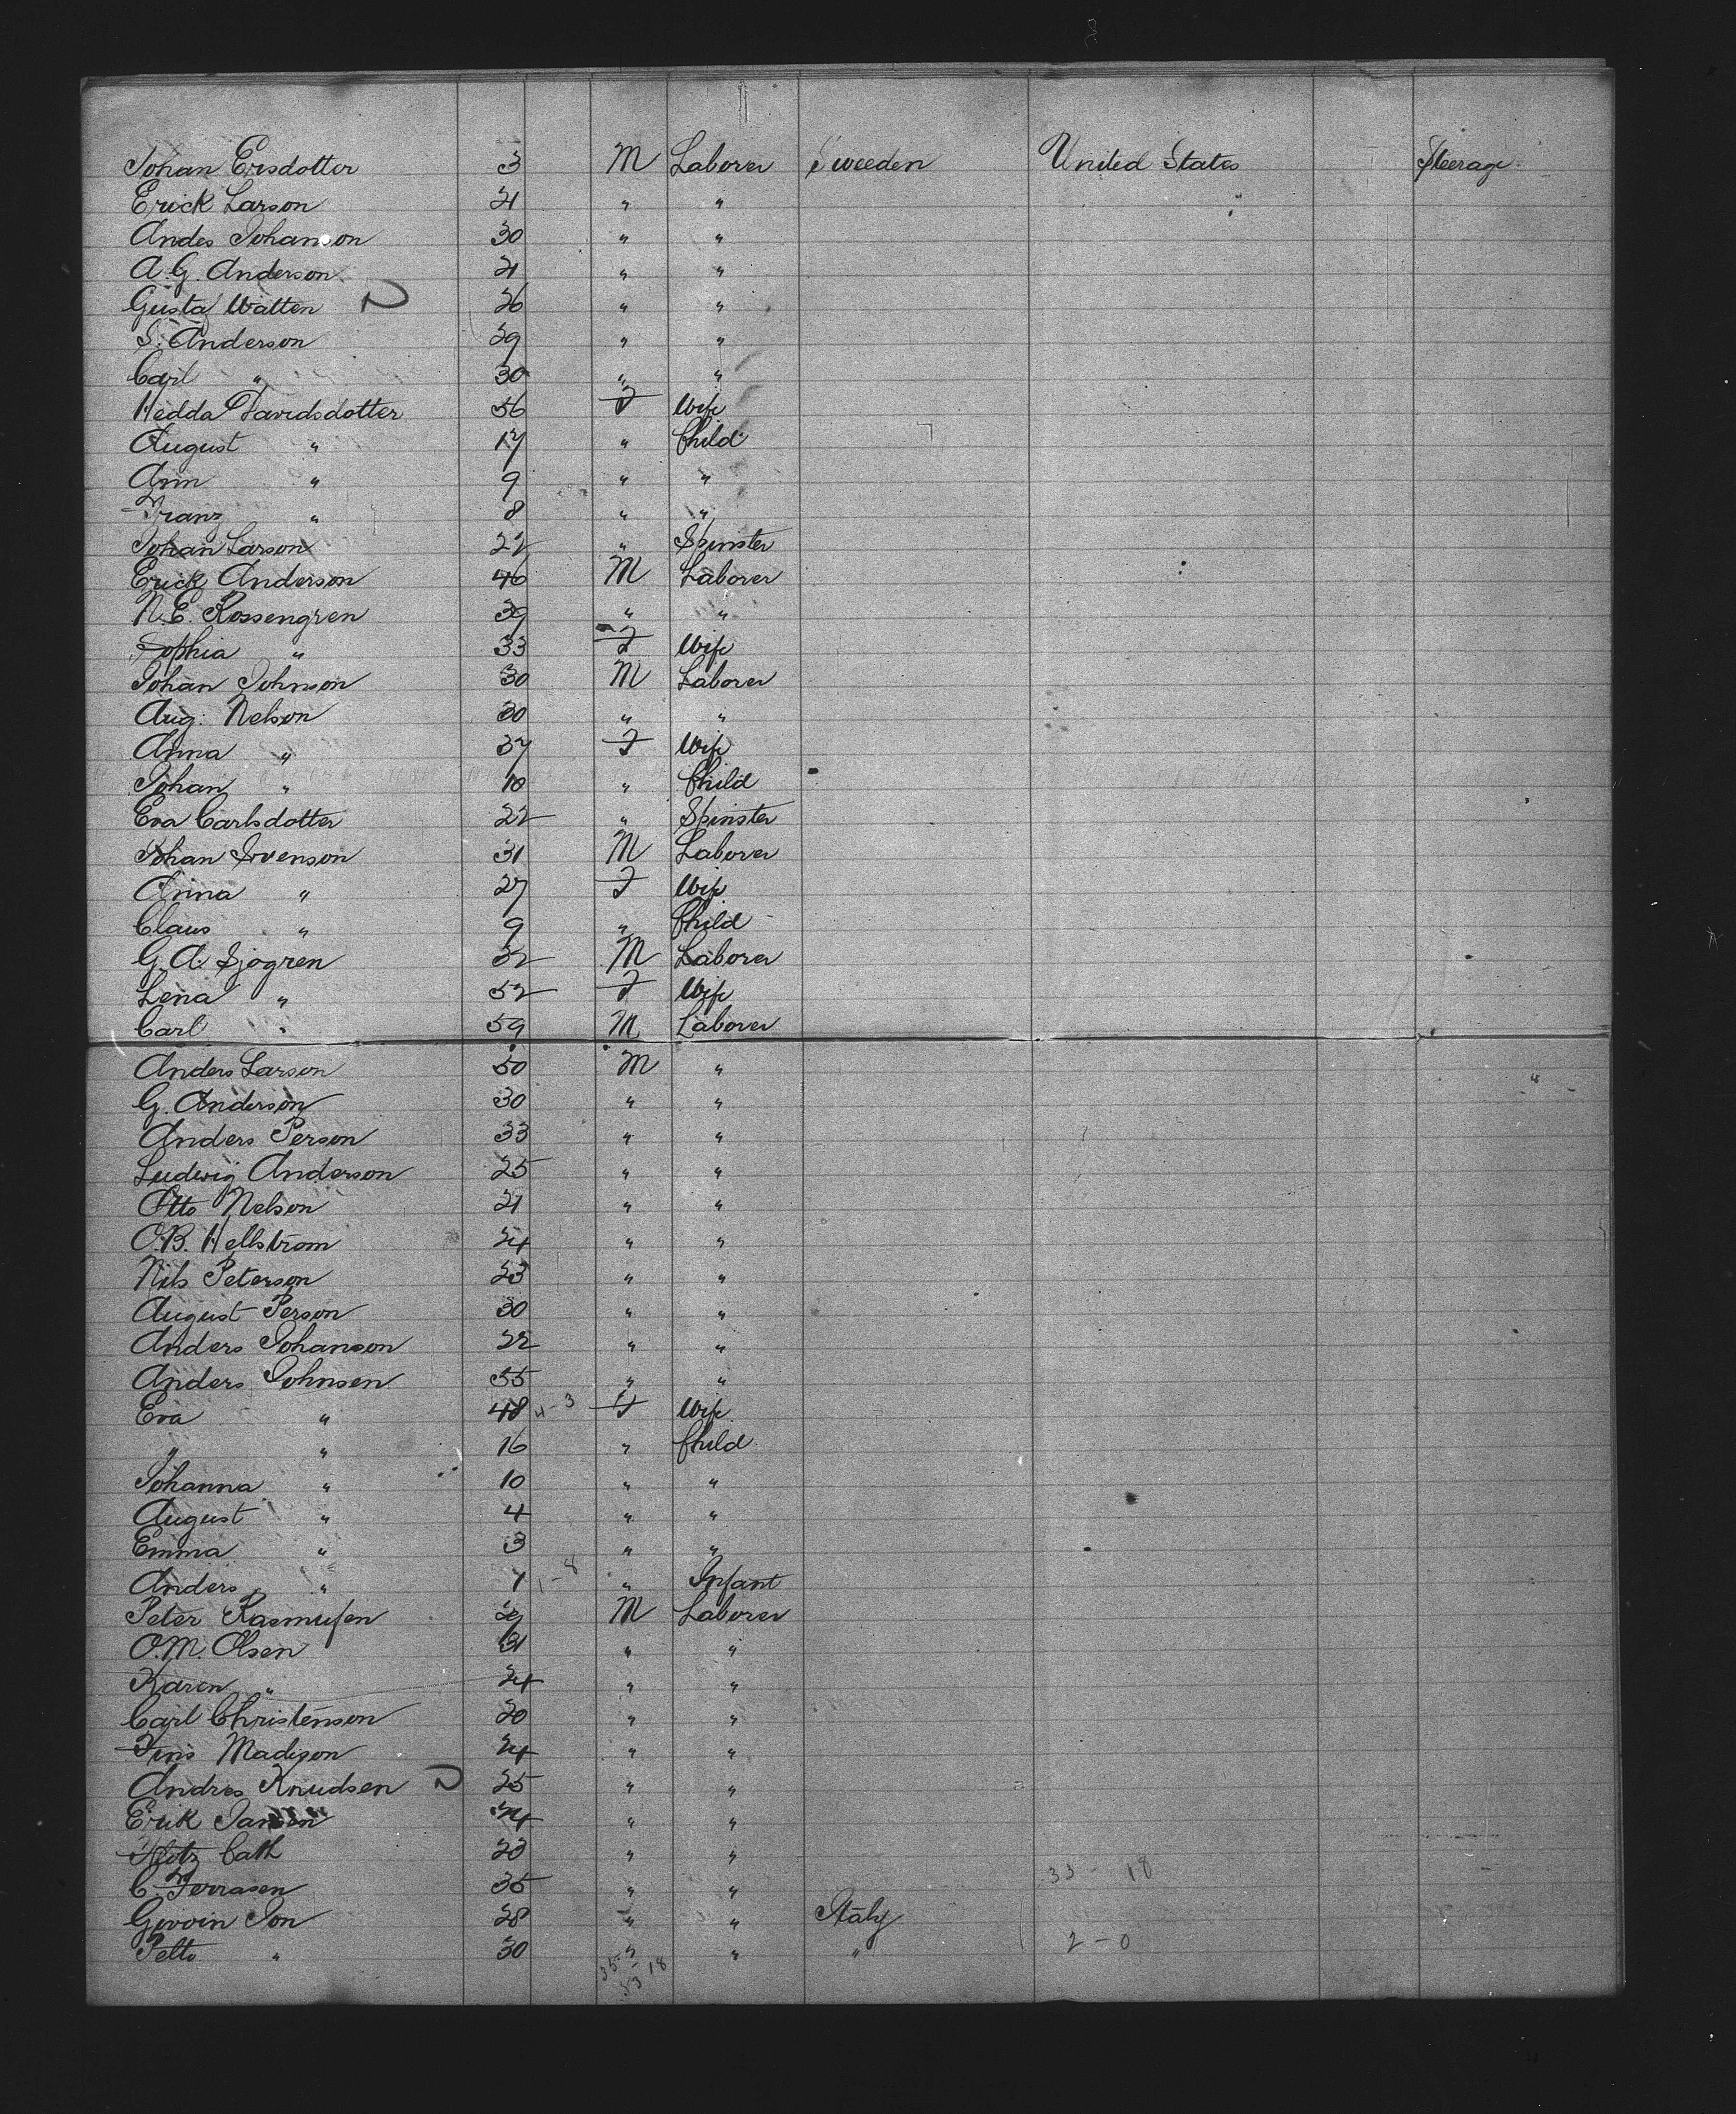 Johan Ersdotter 3 M Laborer Sweeden United States Steerage
Erick Larson 21 " "
Andes Johanson 30 " "
A. G. Anderson 21 " "
Gusta Watten 26 " "
S. Anderson 29 " "
Carl " 30 " "
Hedda Davidsdotter 56 F Wife
August " 17 " Child
Ann " 9 " "
Franz " 8 " "
Johan Larson 22 " Spinster
Erick Anderson 46 M Laborer
N. E. Rossengren 39 " "
Sophia " 33 F Wife
Johan Johnson 30 M Laborer
Aug. Nelson 30 " "
Anna " 37 F Wife
Johan " 10 " Child
Eva Carlsdotter 22 " Spinster
Johan Svenson 31 M Laborer
Anna " 27 F Wife
Claus " 9 " Child
G. A. Sjogren 32 M Laborer
Lena " 52 F Wife
Carl " 59 M Laborer
Anders Larson 50 M "
G. Anderson 30 " "
Anders Person 33 " "
Ludwig Anderson 25 " "
Otto Nelson 21 " "
O. B. Hellstrom 24 " "
Nils Peterson 23 " "
August Person 30 " "
Anders Johanson 22 " "
Anders Johnsen 55 " "
Eva " 48 4-3 F Wife
" " 16 " Child
Johanna " 10 " "
August " 4 " "
Emma " 3 " "
Anders " 1 1-8 " Infant
Peter Rasmussen 29 M Laborer
O. M. Olsen 31 " "
Karen " 24 " "
Carl Christenson 20 " "
Fins Madison 24 " "
Andres Knudsen 25 " "
Erik Janson 24 " "
Cath 23 " "
33 - 18
C. Ferrasen 35 " "
Givvin Jon 28 " " Italy
Petto " 30 " " " 2-0
35-18
33